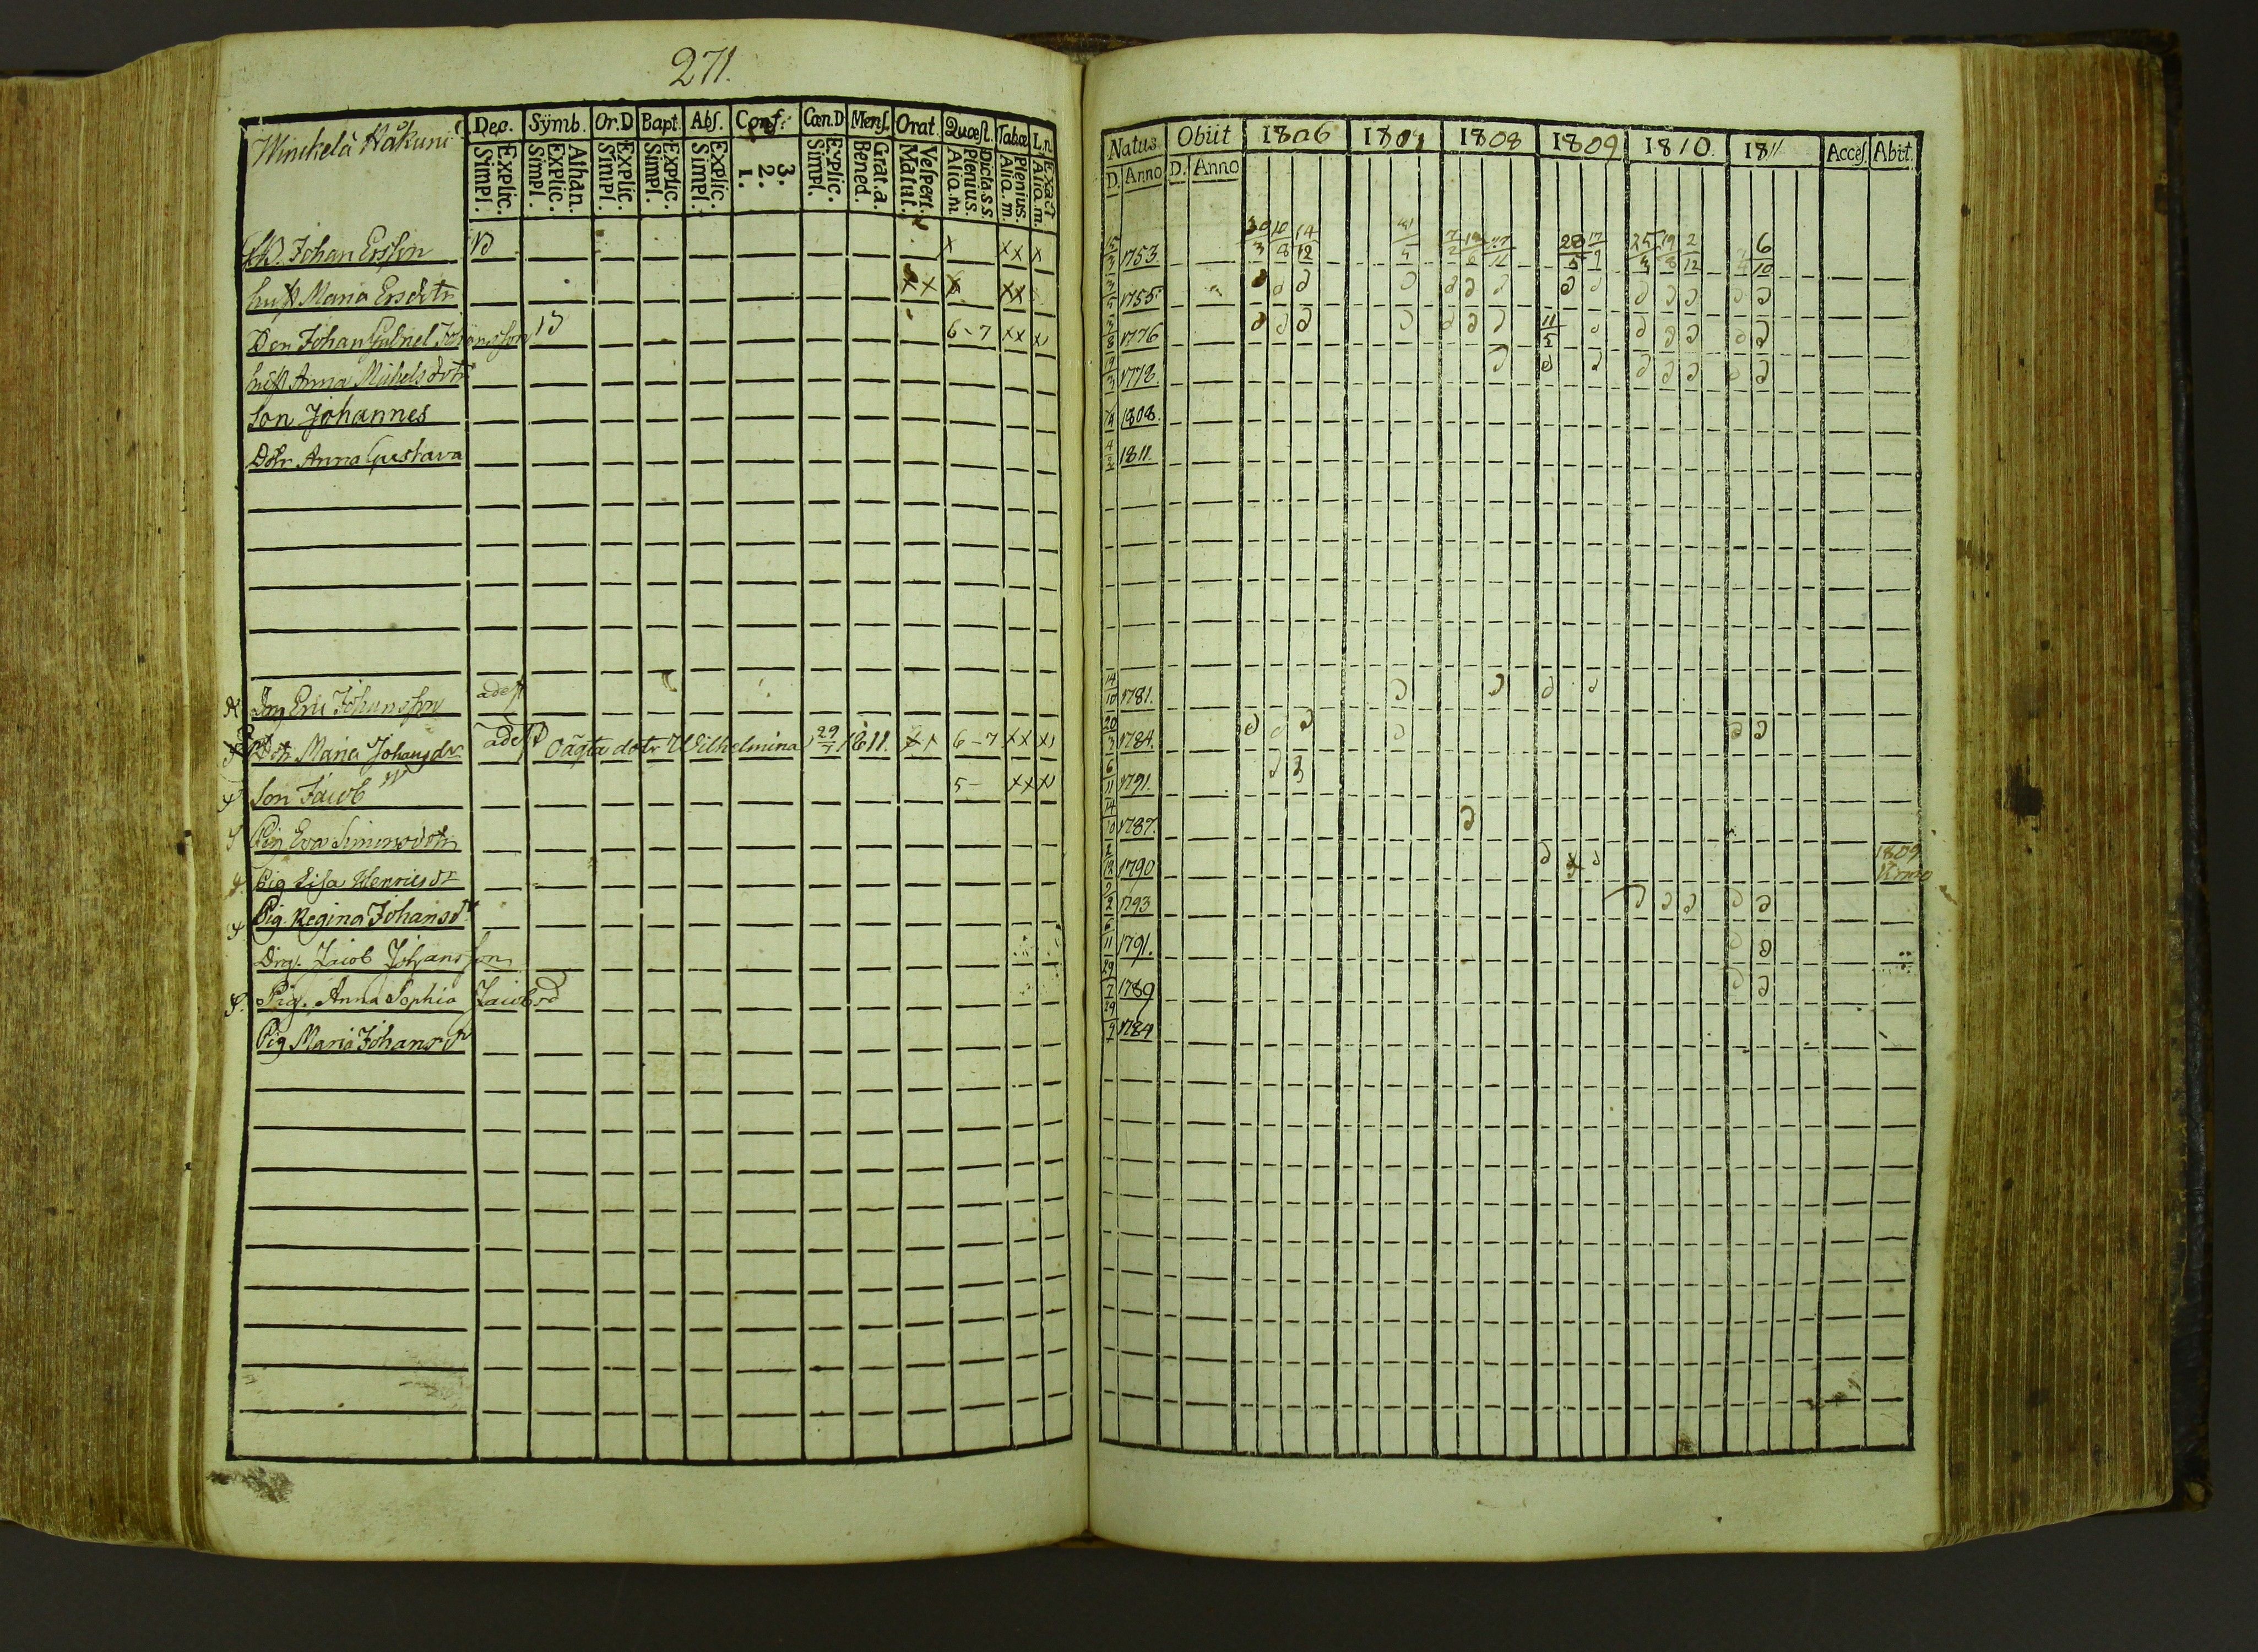 271.
Winikela Håkuni
Dec. Sÿmb. Or.D Bapt. Abs. Conf. Cœn.D. Mens. Orat. Quæst. Tabæ L.n
Explic. Simpl. Athan. Explic. Simpl. Explic. Simpl. Explic. Simpl. Explic. Simpl. 3. 2. 1. Explic. Simpl. Grat.a. Bened. Vespert. Matut. Dicta s.s. Plenius. Alia.m. Plenius. Alia.m. Exact Alia.m.
Natus. Obiit 1806 1807 1808 1809 1810. 1811 Acces. Abit.
D. Anno D. Anno
Johan Ersson x xx x 15/3 1753 30/3 10/8 14/12 28/5 17/9 25/3 19/8 2/12 6/10
hust Maria Ersdtr xx x xx 1755
Son Johan Gabriel Johansson 6-7 xx x 1776 11/5
hust Anna Michelsdotr 19/3 1778.
Son Johannes 1808.
Dotr Anna Gustava 4/2 1811.
Drg Eric Johansson adest 14/10 1781.
Dotr Maria Johansdr adest oägta dotr Wilhelmina 29/7 1811. 6-7 xx x 20/3 1784.
Son Jacob 5- xxx 6/11 1791.
Pig Eva Simonsdotr 14/10 1787.
Pig Lisa Henricsdr 1790 1809
Pig. Regina Johansdr 1793
Drg. Jacob Johansson 6/11 1791.
Pig. Anna Sophia Jacobsd 29/7 1789
Pig Maria Johansdr 29/9 1784